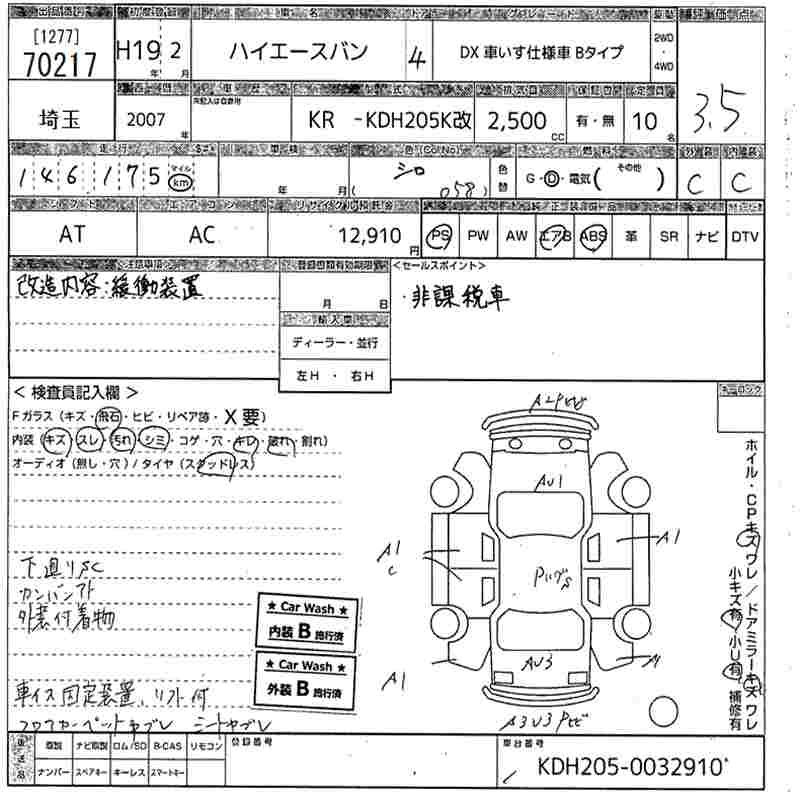 出品番号 初度登録 車名 ドア グレード 駆動 評価点
[1277]
70217
H19年 2月
ハイエースバン
4
DX 車いす仕様車 Bタイプ
2WD
・
4WD
3.5
車歴 型式 排気量 保証書 定員
埼玉
2007 年
未記入は自家用
KR -KDH205K改
2,500 cc
有・無
10 名
走行 車検 色(Co.No) 燃料 外装 内装
146,175
マイル
km
年 月
シロ
( 058 )
色替
G・D・電気( その他 )
C C
シフト エアコン リサイクル預託金
AT
AC
12,910 円
PS PW AW エアB ABS 革 SR ナビ DTV
注意事項
登録書類有効期限
<セールスポイント>
改造内容:緩衝装置
月 日
・非課税車
輸入車
ディーラー・並行
左H ・ 右H
< 検査員記入欄 >
Fガラス(キズ・飛石・ヒビ・リペア跡・X要)
内装(キズ・スレ・汚れ・シミ・コゲ・穴・キレ・破れ・割れ)
オーディオ(無し・穴)/タイヤ(スタッドレス)
キーロック
A2Pヒビ
AU1
A1
C
A1
A1
AU3
A3U3Pヒビ
ホイル・CPキズワレ/ドアミラーキズワレ
小キズ有 小U有 補修有
下廻りSC
外装付着物
車イス固定装置、リフト付
フロアカーペットヤブレ シートヤブレ
★ Car Wash ★
内装 B 施行済
★ Car Wash ★
外装 B 施行済
後送品
取説 ナビ取説 ロム/SD B-CAS リモコン
ナンバー スペアキー キーレス スマートキー
登録番号
車台番号
KDH205-0032910*